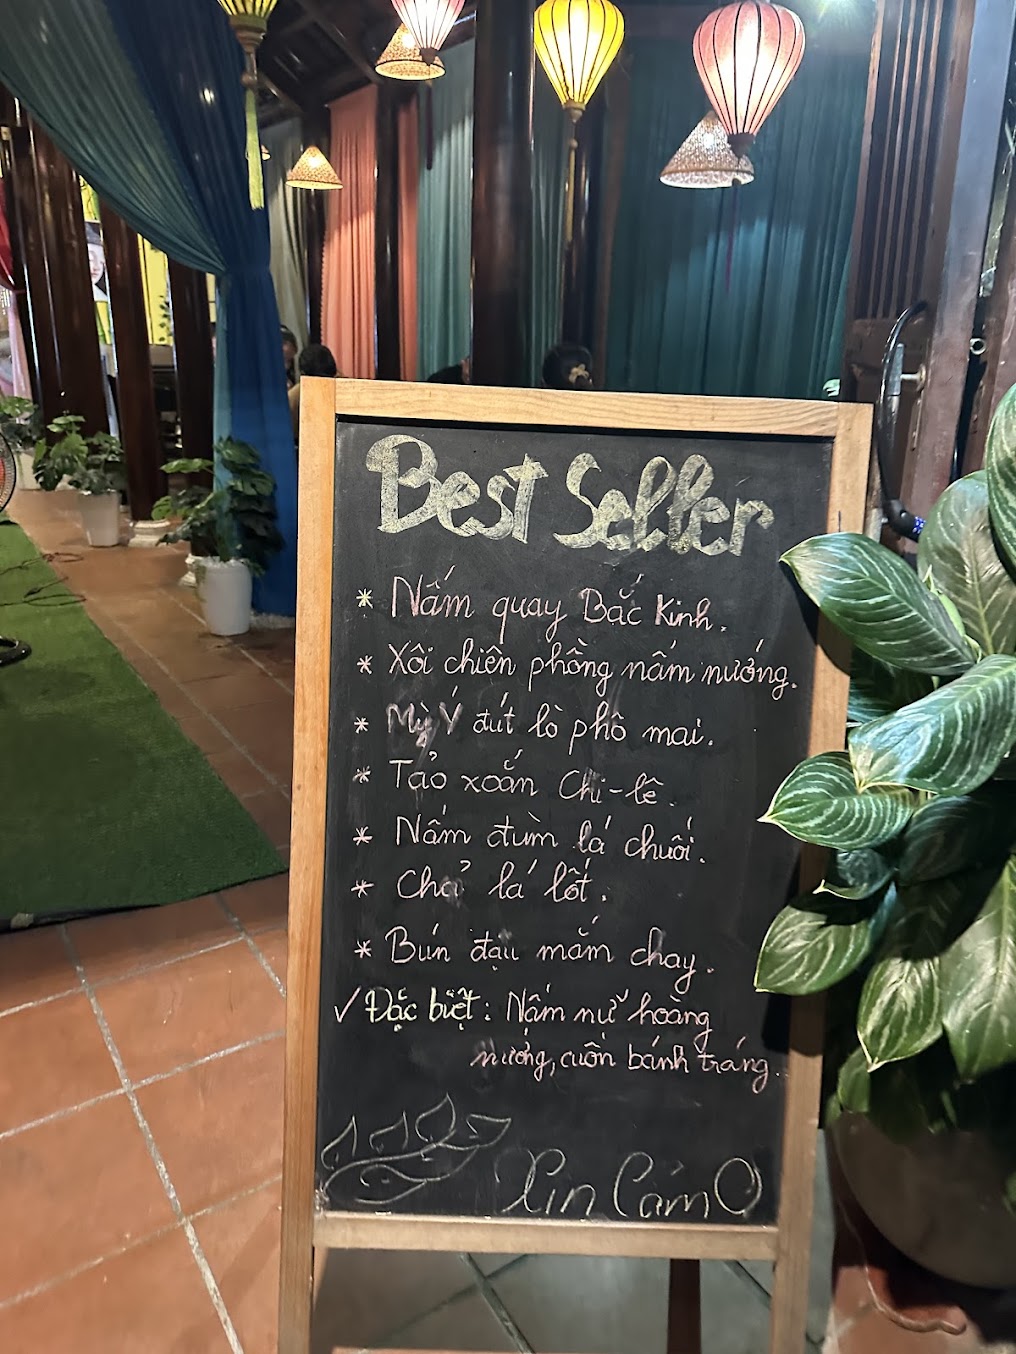 Best Seller
* Nấm quay Bắc Kinh.
* Xôi chiên phồng nấm nướng.
* Mỳ Ý đút lò phô mai.
* Tảo xoắn Chi-lê.
* Nấm đùm lá chuối.
* Chả lá lốt.
* Bún đậu mắm chay.
✓ Đặc biệt: Nấm nữ hoàng
nướng, cuốn bánh tráng.
Xin Cảm Ơ